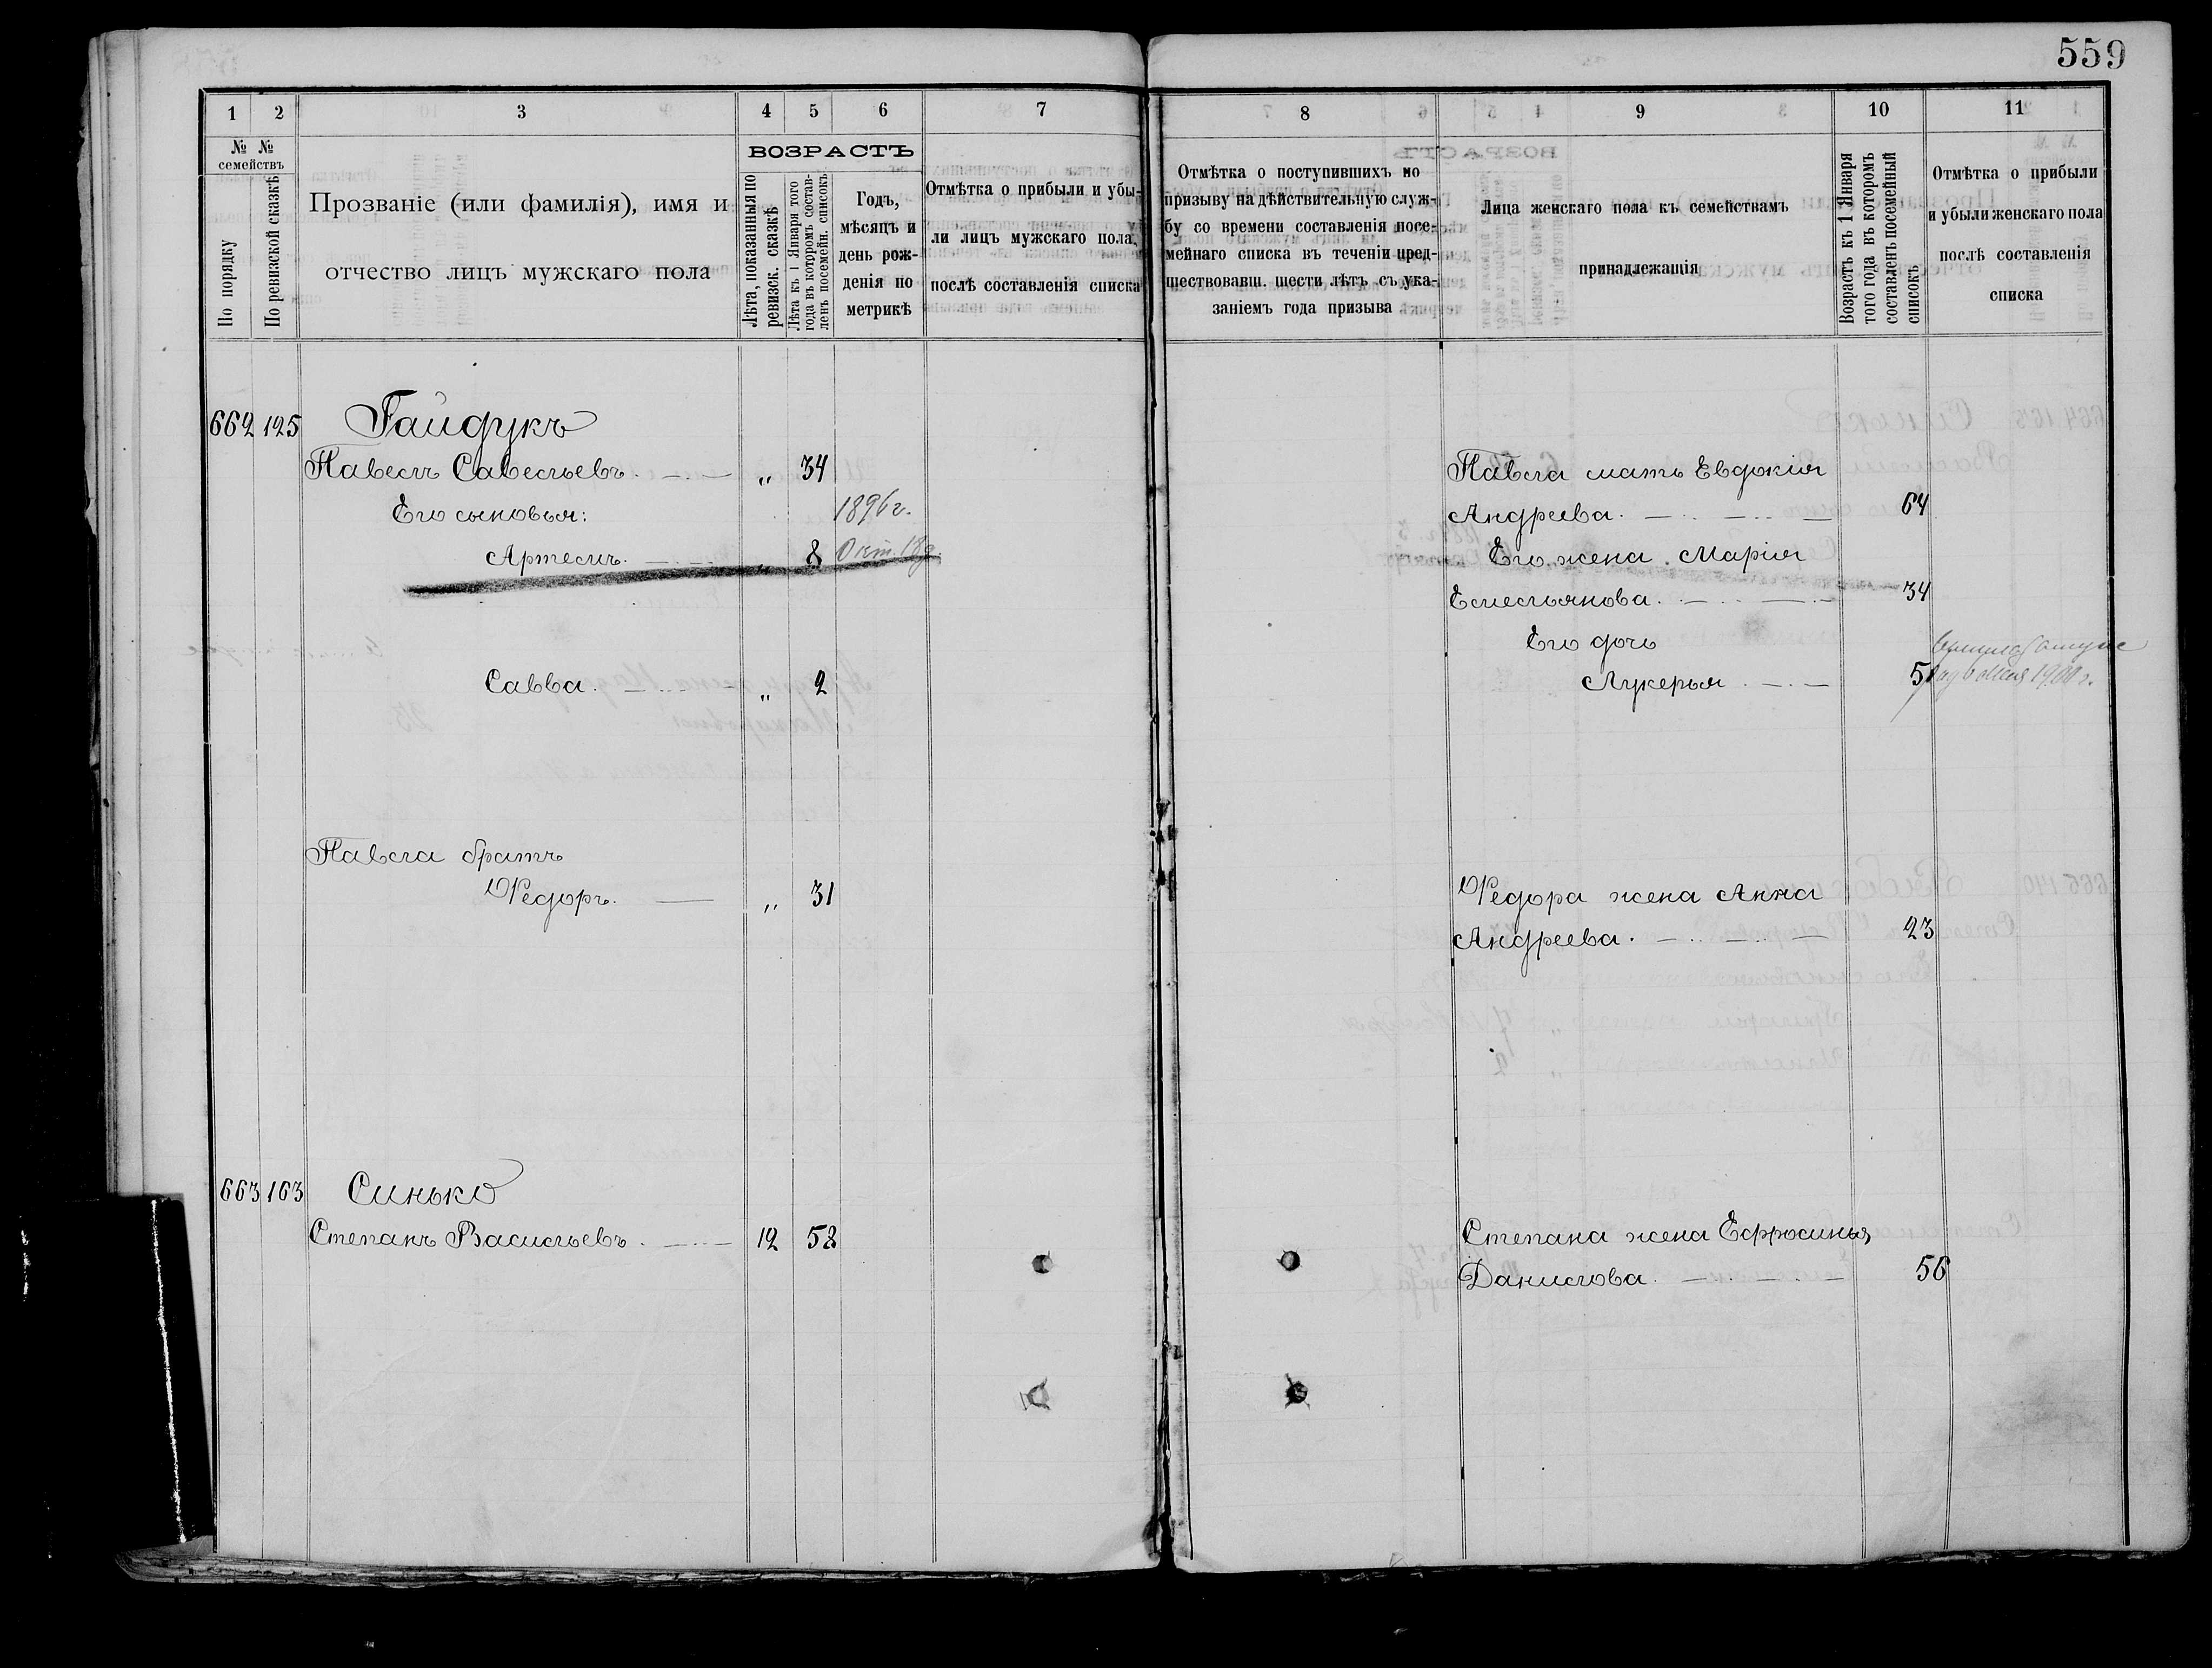 559
1 2 3 4 5 6 7 8 9 10 11
№ № семействъ
По порядку
По ревизской сказкѣ
Прозваніе (или фамилія), имя и
отчество лицъ мужскаго пола
ВОЗРАСТЪ
Лѣта, показанныя по
ревизск. сказкѣ
Лѣта къ 1 Января того
года въ которомъ состав-
ленъ посемейн. списокъ
Годъ,
мѣсяцъ и
день рож-
денія по
метрикѣ
Отмѣтка о прибыли и убы-
ли лицъ мужскаго пола,
послѣ составленія списка
Отмѣтка о поступившихъ по
призыву на дѣйствительную служ-
бу со времени составленія посе-
мейнаго списка въ теченіи пред-
шествовавш. шести лѣтъ съ ука-
заніемъ года призыва
Лица женскаго пола къ семействамъ
принадлежащія
Возрастъ къ 1 Января
того года въ которомъ
составленъ посемейный
списокъ
Отмѣтка о прибыли
и убыли женскаго пола
послѣ составленія
списка
662 125 Гайдукъ
Павелъ Савельевъ. „ 34
Павла мать Евдокія
Его сыновья: 1896 г.
Андреева. 64
Артемъ. „ 8 Окт. 18 д.
Его жена Марія
Емельянова. 34
Его дочь
Савва. „ 2
Лукерья 5 1900 г.
Павла братъ
Ѳедоръ. „ 31
Ѳедора жена Анна
Андреева. 23
663 163 Синько
Степанъ Васильевъ. 12 52
Степана жена Ефросинья
Данилова. 56